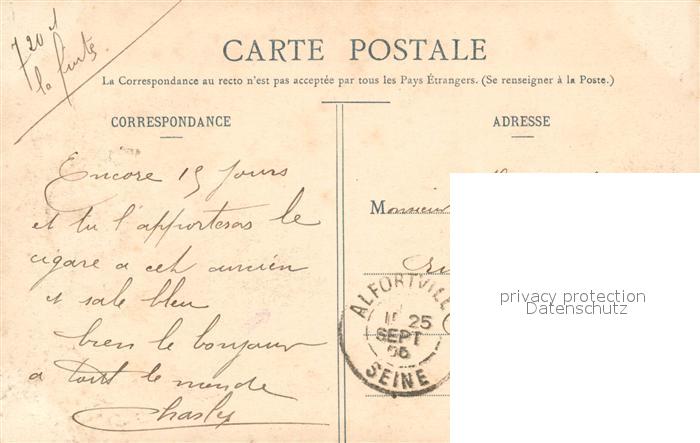 720 1
la fuite
CARTE POSTALE
La Correspondance au recto n'est pas acceptée par tous les Pays Étrangers. (Se renseigner à la Poste.)
CORRESPONDANCE
ADRESSE
Encore 15 jours
et tu l'apporteras le
cigare a cet ancien
et sale bleu
bien le bonjour
a tout le monde
Charles
Monsieur
privacy protection
Datenschutz
ALFORTVILLE
25
SEPT
SEINE